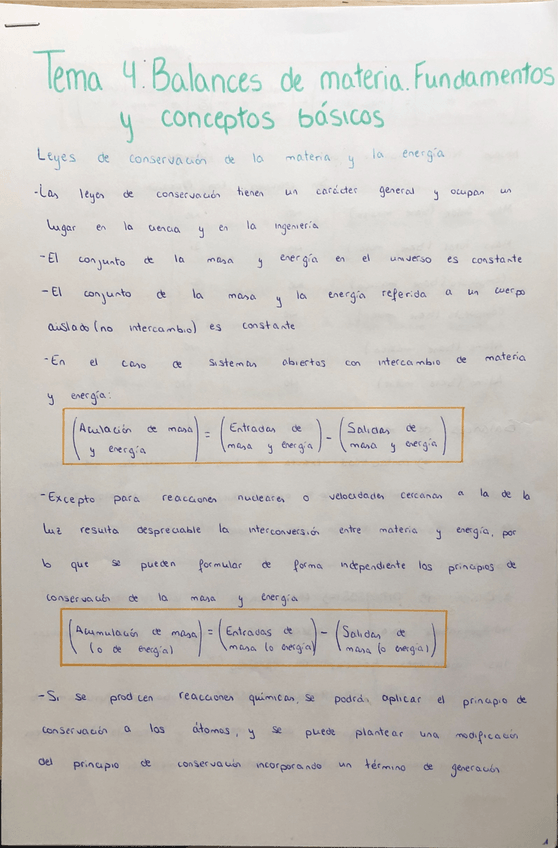 Tema 4: Balances de materia. Fundamentos
y conceptos básicos
Leyes de conservación de la materia y la energía
-Las leyes de conservación tienen un carácter general y ocupan un
lugar en la ciencia y en la ingeniería
-El conjunto de la masa y energía en el universo es constante
-El conjunto de la masa y la energía referida a un cuerpo
aislado (no intercambio) es constante
-En el caso de sistemas abiertos con intercambio de materia
y energía:
(Aculación de masa y energía) = (Entradas de masa y energía) - (Salidas de masa y energía)
-Excepto para reacciones nucleares o velocidades cercanas a la de la
luz resulta despreciable la interconversión entre materia y energía, por
lo que se pueden formular de forma independiente los principios de
conservación de la masa y energía
(Acumulación de masa (o de energía)) = (Entradas de masa (o energía)) - (Salidas de masa (o energía))
-Si se producen reacciones químicas, se podrá aplicar el principio de
conservación a los átomos, y se puede plantear una modificación
del principio de conservación incorporando un término de generación
1